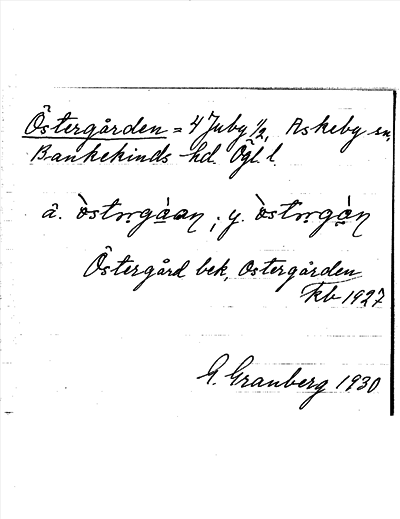 Östergården = 4 Juby 1/2, Askeby sn,
Bankekinds hd. Ögl l.
ä. ; y.
Östergård bek, Östergården
kb 1927
G. Granberg 1930